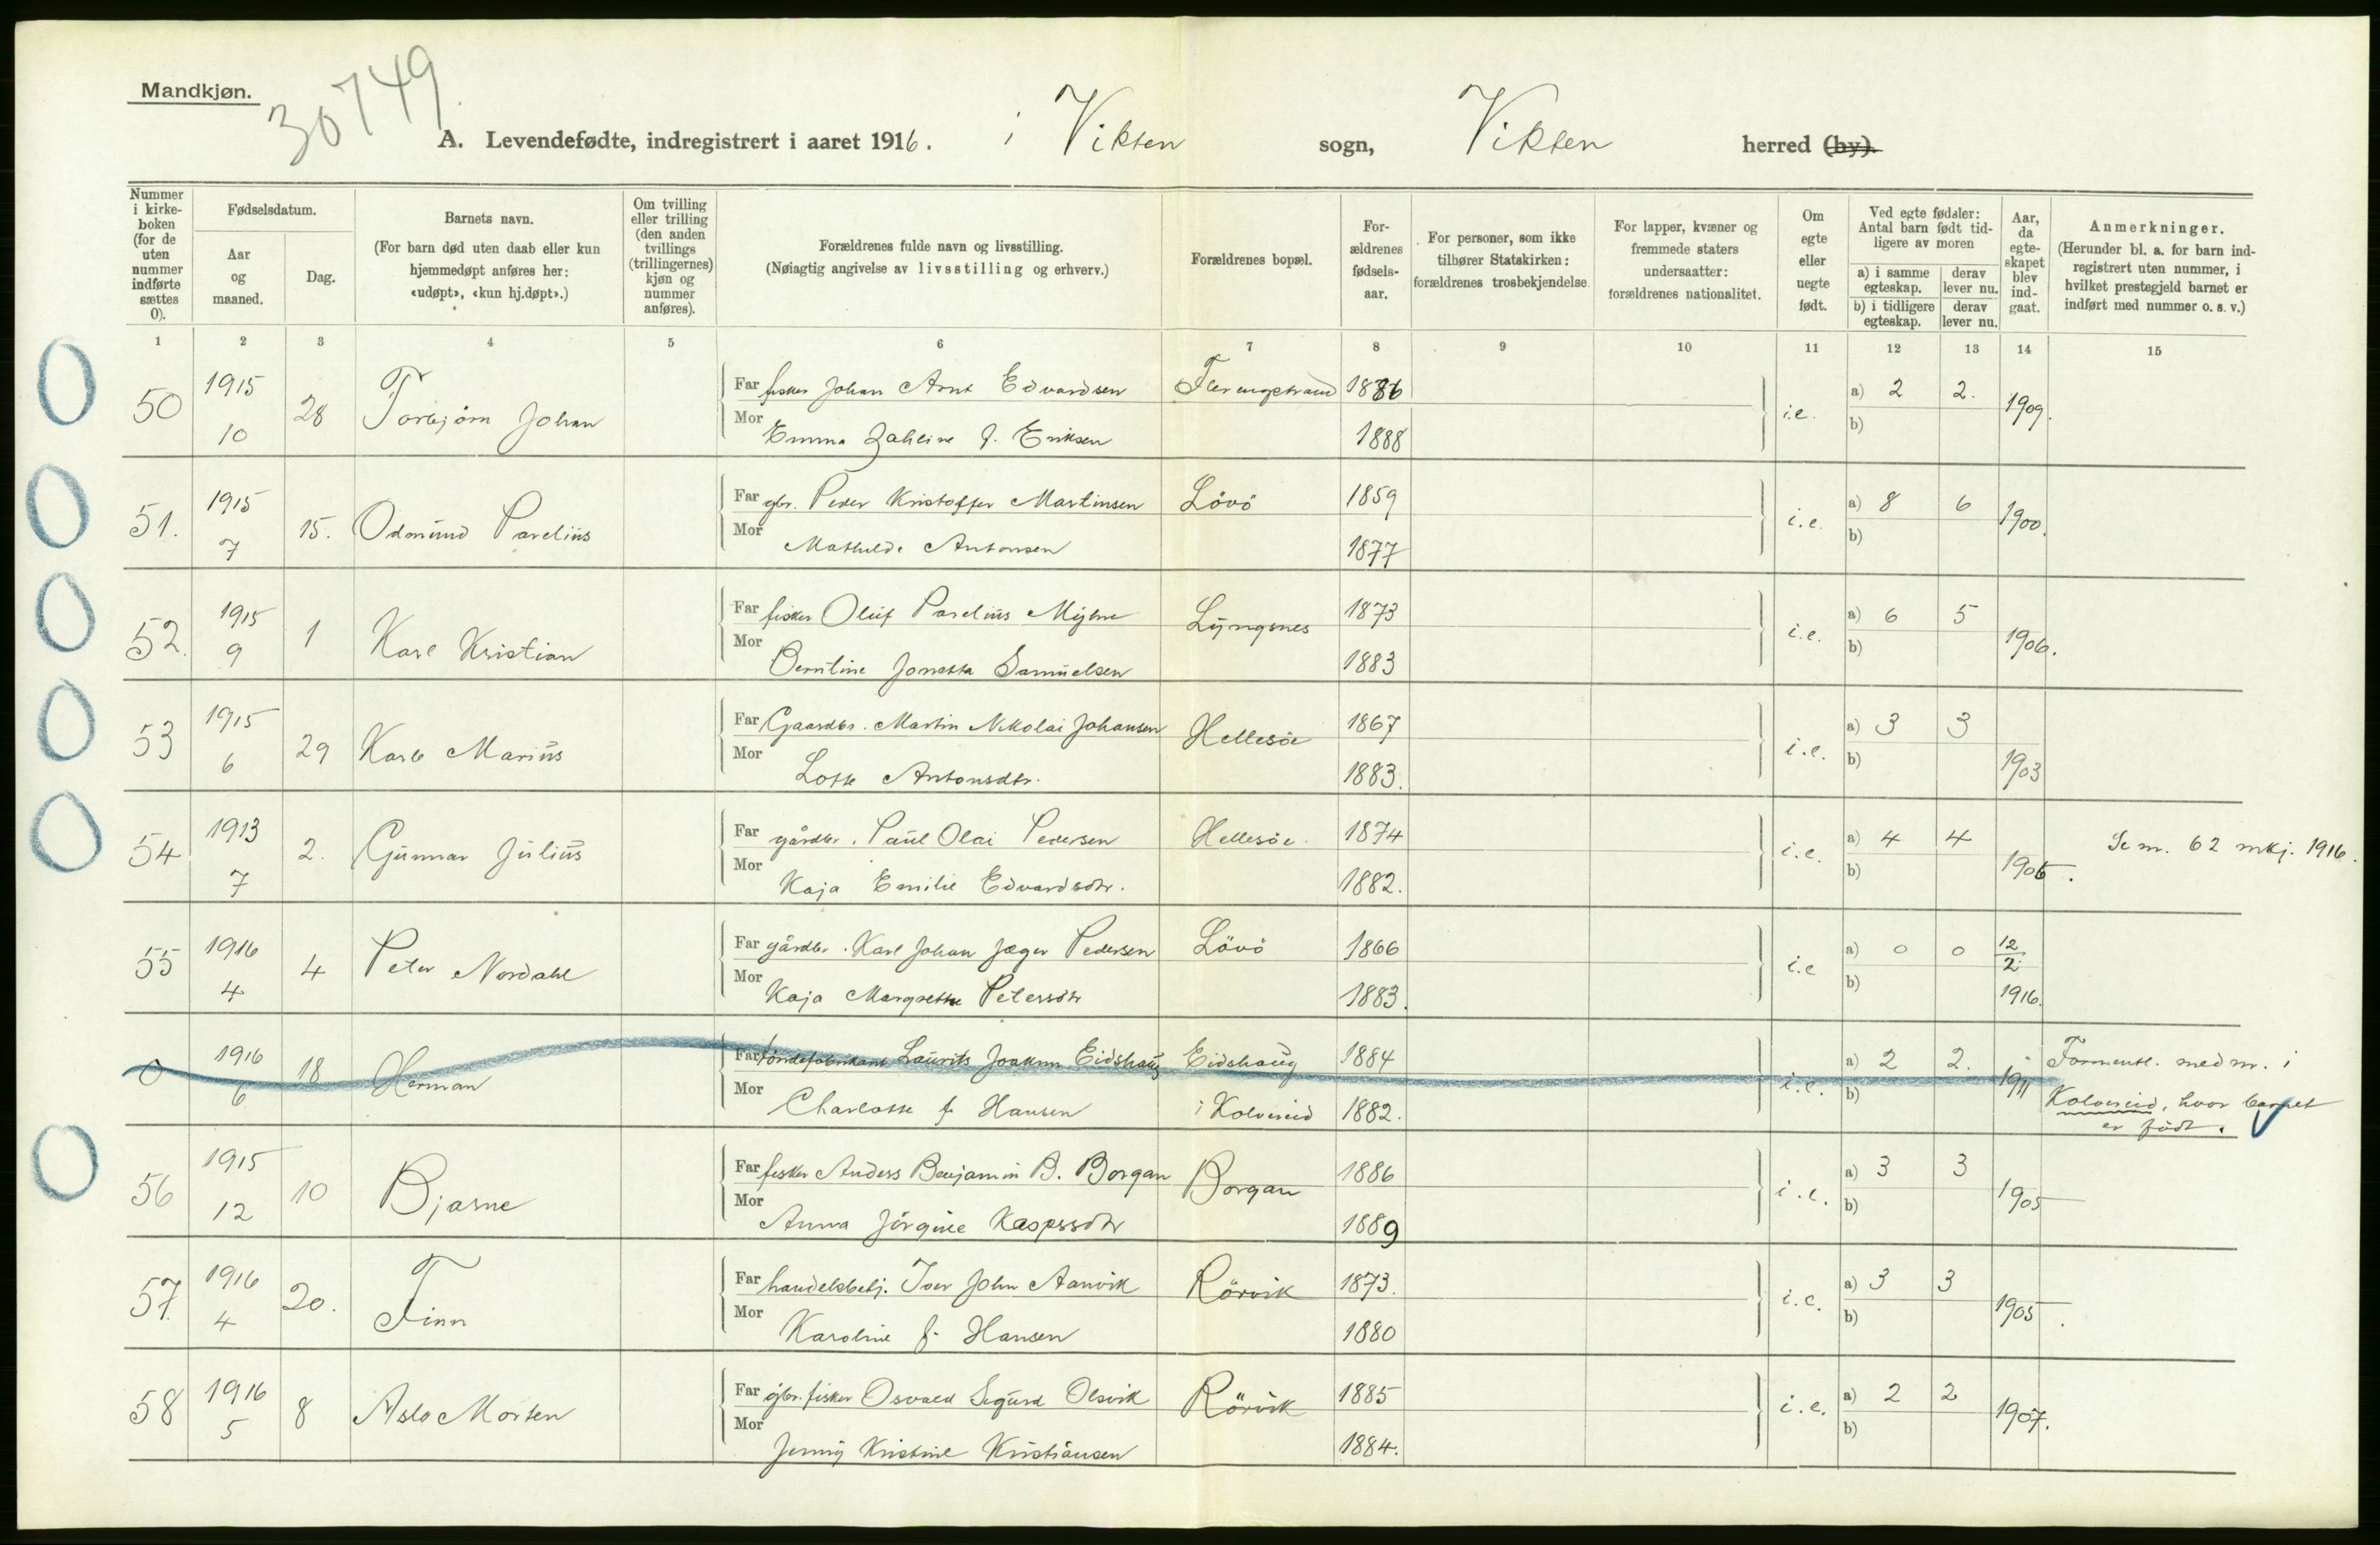 Mandkjøn.
30749.
A. Levendefødte, indregistrert i aaret 1916. i Vikten sogn, Vikten herred (by).
Nummer i kirkeboken (for de uten nummer indførte sættes 0).
Fødselsdatum.
Aar og maaned.
Dag.
Barnets navn.
(For barn død uten daab eller kun hjemmedøpt anføres her: «udøpt», «kun hj.døpt».)
Om tvilling eller trilling (den anden tvillings (trillingernes) kjøn og nummer anføres).
Forældrenes fulde navn og livsstilling.
(Nøiagtig angivelse av livsstilling og erhverv.)
Forældrenes bopæl.
Forældrenes fødselsaar.
For personer, som ikke tilhører Statskirken: forældrenes trosbekjendelse.
For lapper, kvæner og fremmede staters undersaatter: forældrenes nationalitet.
Om egte eller uegte født.
Ved egte fødsler: Antal barn født tidligere av moren
a) i samme egteskap. derav lever nu.
b) i tidligere egteskap. derav lever nu.
Aar, da egteskapet blev indgaat.
Anmerkninger.
(Herunder bl. a. for barn indregistrert uten nummer, i hvilket prestegjeld barnet er indført med nummer o. s. v.)
1 2 3 4 5 6 7 8 9 10 11 12 13 14 15
50 1915 10 28 Torbjørn Johan
Far fisker Johan Arnt Edvardsen 1886
Mor Emma f. Eriksen 1888
i.e. a) 2 2. b) 1909.
51. 1915 7 15. Odmund Parelius
Far gbr. Peder Kristoffer Martinsen Lövö 1859
Mor Mathilde Antonsen 1877
i.e. a) 8 6 b) 1900.
52. 1915 9 1 Karl Kristian
Far fisker Oluf Parelius Myhre Lyngsnes 1873
Mor Berntine Jonetta Samuelsen 1883
i.e. a) 6 5 b) 1906.
53 1915 6 29 Karlo Marius
Far Gaardbr. Martin Nikolai Johansen Hellesöe 1867
Mor Lotte Antonsdtr. 1883.
i.e. a) 3 3 b) 1903
54 1913 7 2. Gunnar Julius
Far gårdbr. Paul Olai Pedersen Hellesöe. 1874
Mor Kaja Emilie Edvardsdtr. 1882.
i.e. a) 4 4 b) Se nr. 62 mkj. 1916.
55 1916 4 4 Peter Nordahl
Far gårdbr. Karl Johan Jæger Pedersen Lövö 1866
Mor Kaja Margrethe Petersdtr 1883.
i.e a) 0 0 b) 12/2 1916.
0 1916 6 18 Herman
Far töndefabrikant Laurits Joakim Eidshaug Eidshaug 1884
Mor Charlotte f. Hansen i Kolvereid 1882.
i.e. a) 2 2. b) 1911
Formentl. med nr. i
Kolvereid, hvor barnet
er født.
56 1915 12 10 Bjarne
Far fisker Anders Benjamin B. Borgan Borgan 1886
Mor Anna Jörgine Kaspersdtr 1889
i.e. a) 3 3 b) 1905
57. 1916 4 20. Finn
Far handelsbetj. Iver John Aanvik Rörvik 1873.
Mor Karoline f. Hansen 1880
i.e. a) 3 3 b) 1905.
58 1916 5 8 Aslo Morten
Far gbr. fisker Osvald Sigurd Olsvik Rörvik 1885
Mor Jenny Kristine Kristiansen 1884.
i.e. a) 2 2 b) 1907.